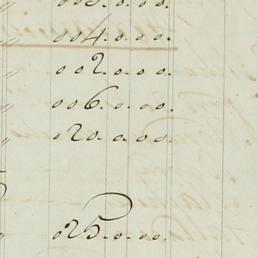 004.0.0.0.
002.0.0.0.
006.0.0.0.
020.0.00.
025.0.00.